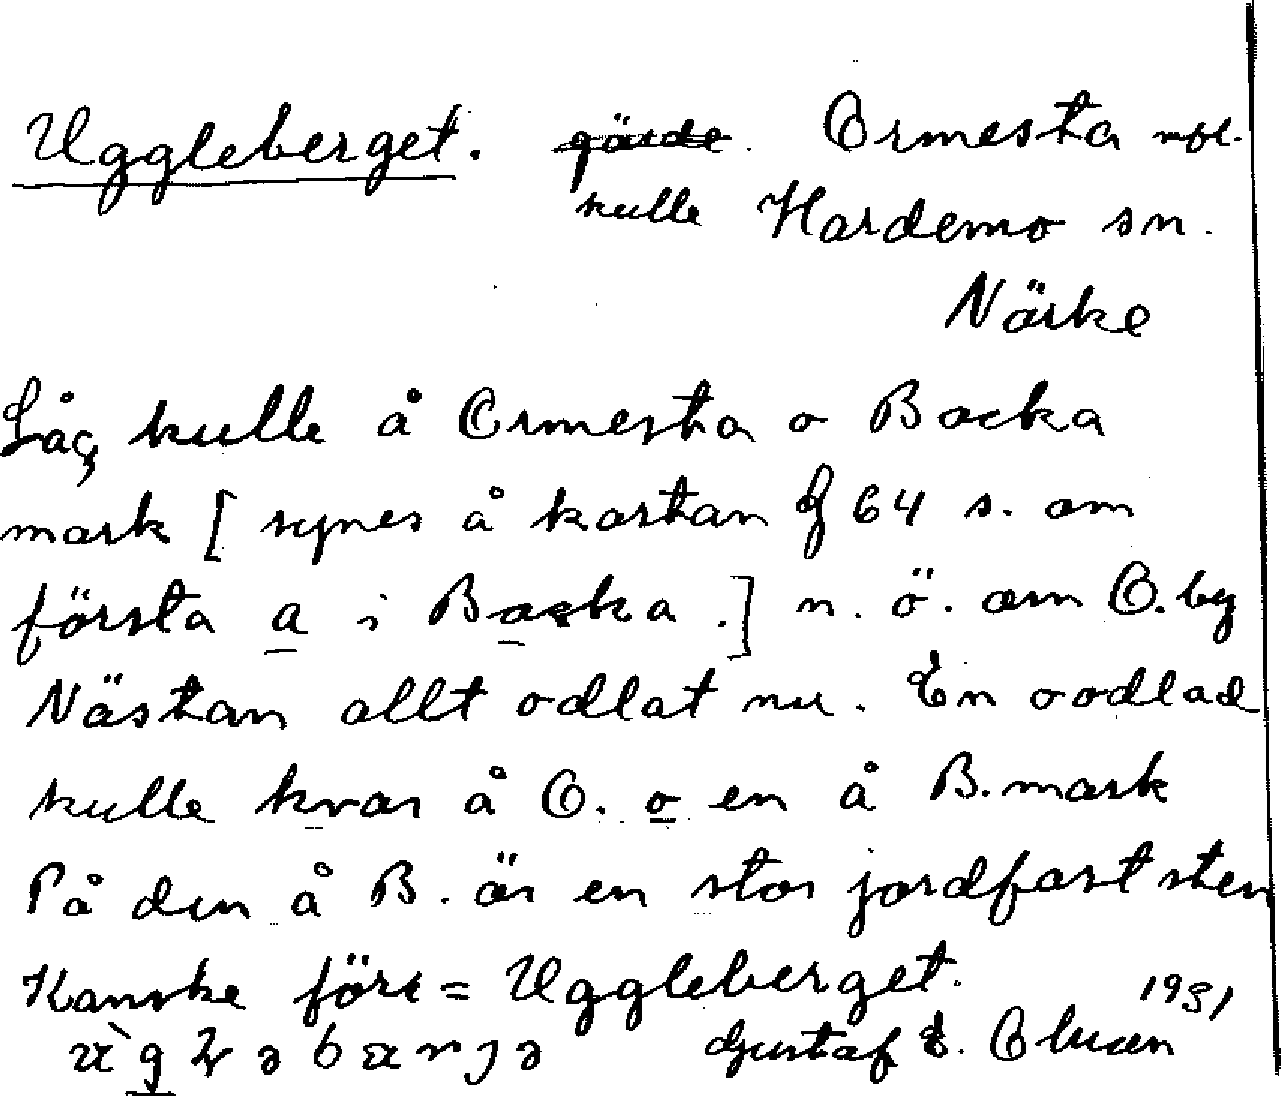 Uggleberget. gärde. Ormesta
kulle Hardemo sn.
Närke
Låg kulle å Ormesta o Backa
mark [ synes å kartan f 64 s. om
första a i Backa .] n. ö. om O. by
Nästan allt odlat nu. En oodlad
kulle kvar å O. o en å B. mark
På den å B. är en stor jordfast sten
Kanske förr = Uggleberget.
1931
Gustaf E.